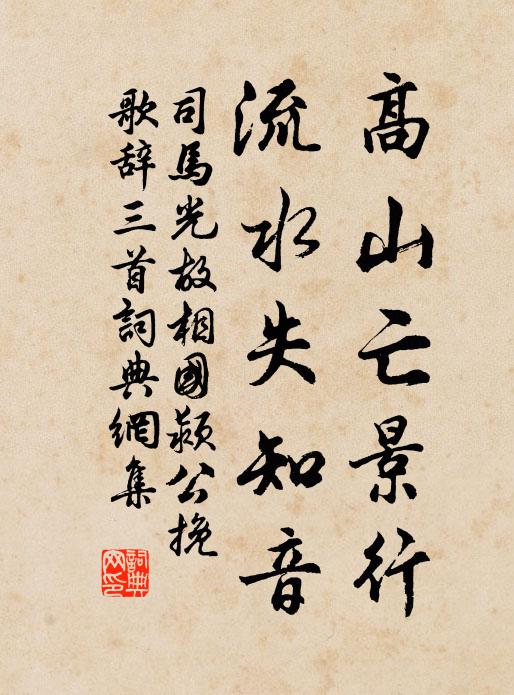 高山亡景行
流水失知音
司馬光故相國颍公挽
歌辞三首詞典網集
詞典網印